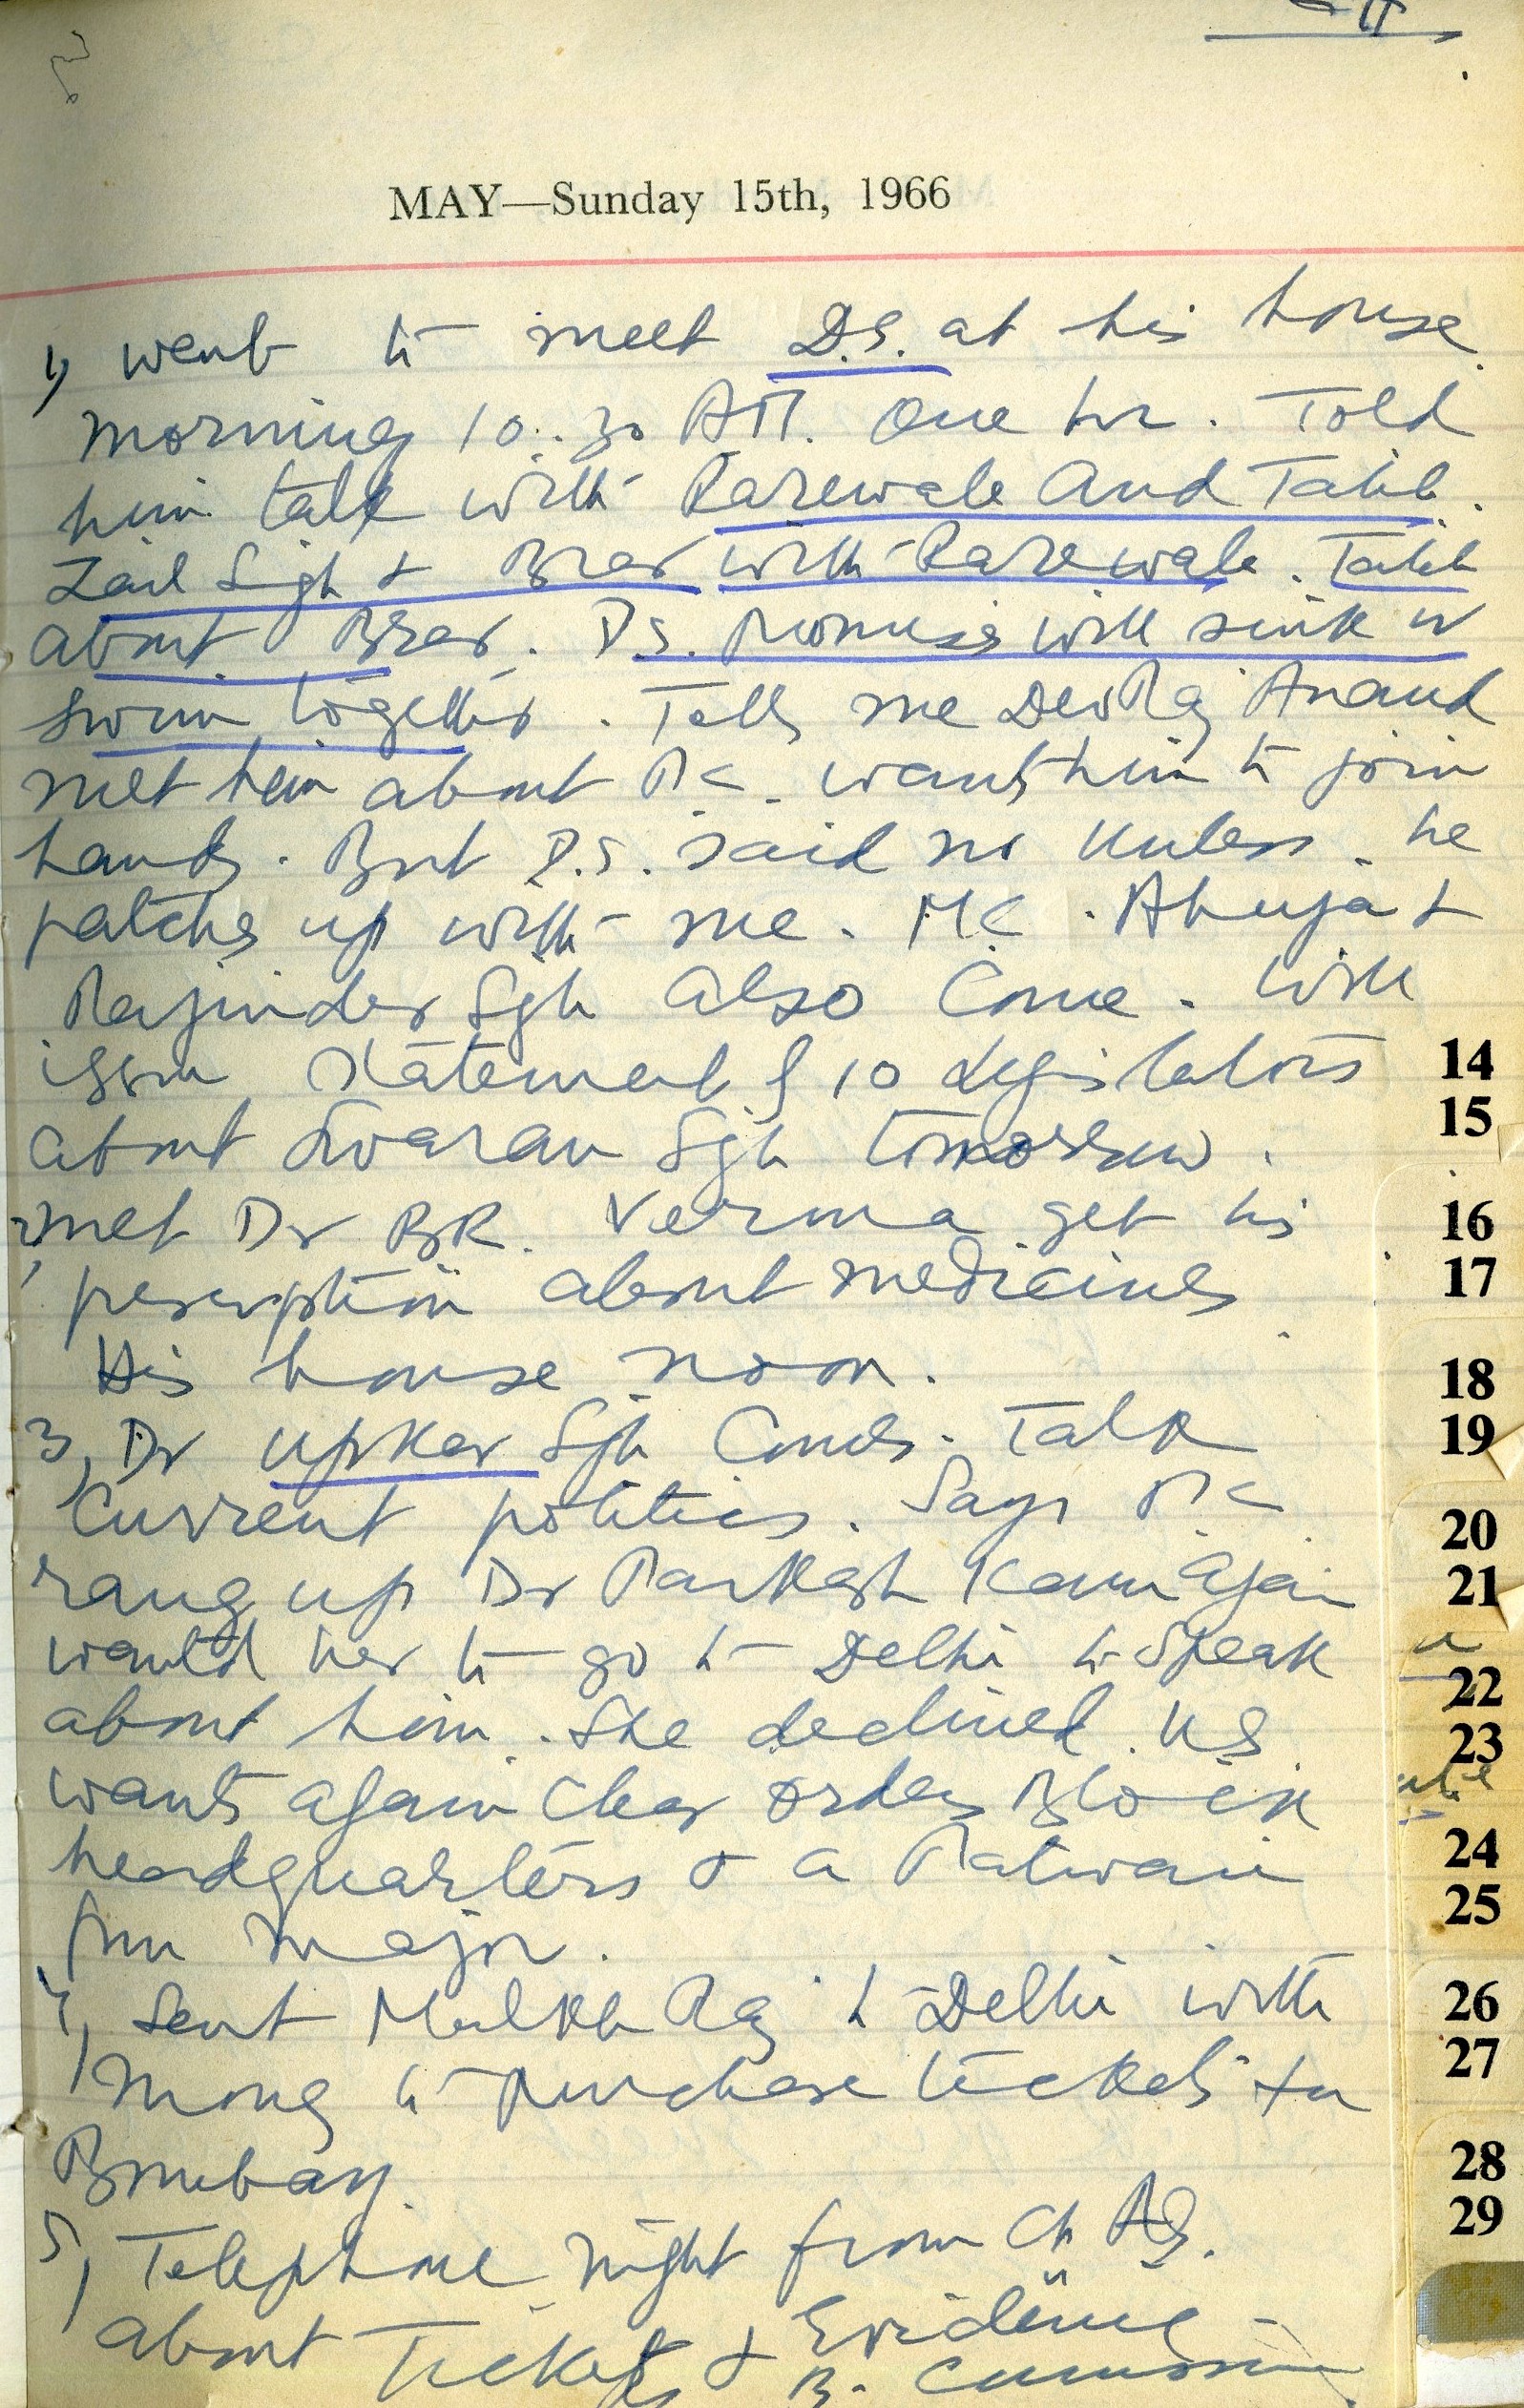 MAY—Sunday 15th, 1966
1) went to meet D.S. at his house
morning 10.30 AM. One hr. Told
him talk with Rarewala and Talib.
Zail Sigh + Brar with Rarewala. Talib
about Brar. D.S. Promises will sink or
swim together. Tells me Dev Raj Anand
met him about P.K. wants him to join
hands. But D.S. said no unless he
patches up with me. M.C. Ahuja +
Rajinder Sgh also come. Will
issue statement of 10 legislators
about Swaran Sgh tomorrow.
2) met Dr BR. Verma get his
perscription about medicines
His house noon.
3) Dr Upkar Sgh Comes. Talk
Current politics. Says P.K
rang up Dr Parkash Kaur again
wanted her to go to Delhi to speak
about him. She declined. US
wants again clear orders Block
headquarters & a Patwari
from major.
4) Sent Mulkh Raj to Delhi with
money to purchase tickets for
Bombay.
5) Telephone night from Ch
about Tickets & Evidence
14
15
16
17
18
19
20
21
22
23
24
25
26
27
28
29